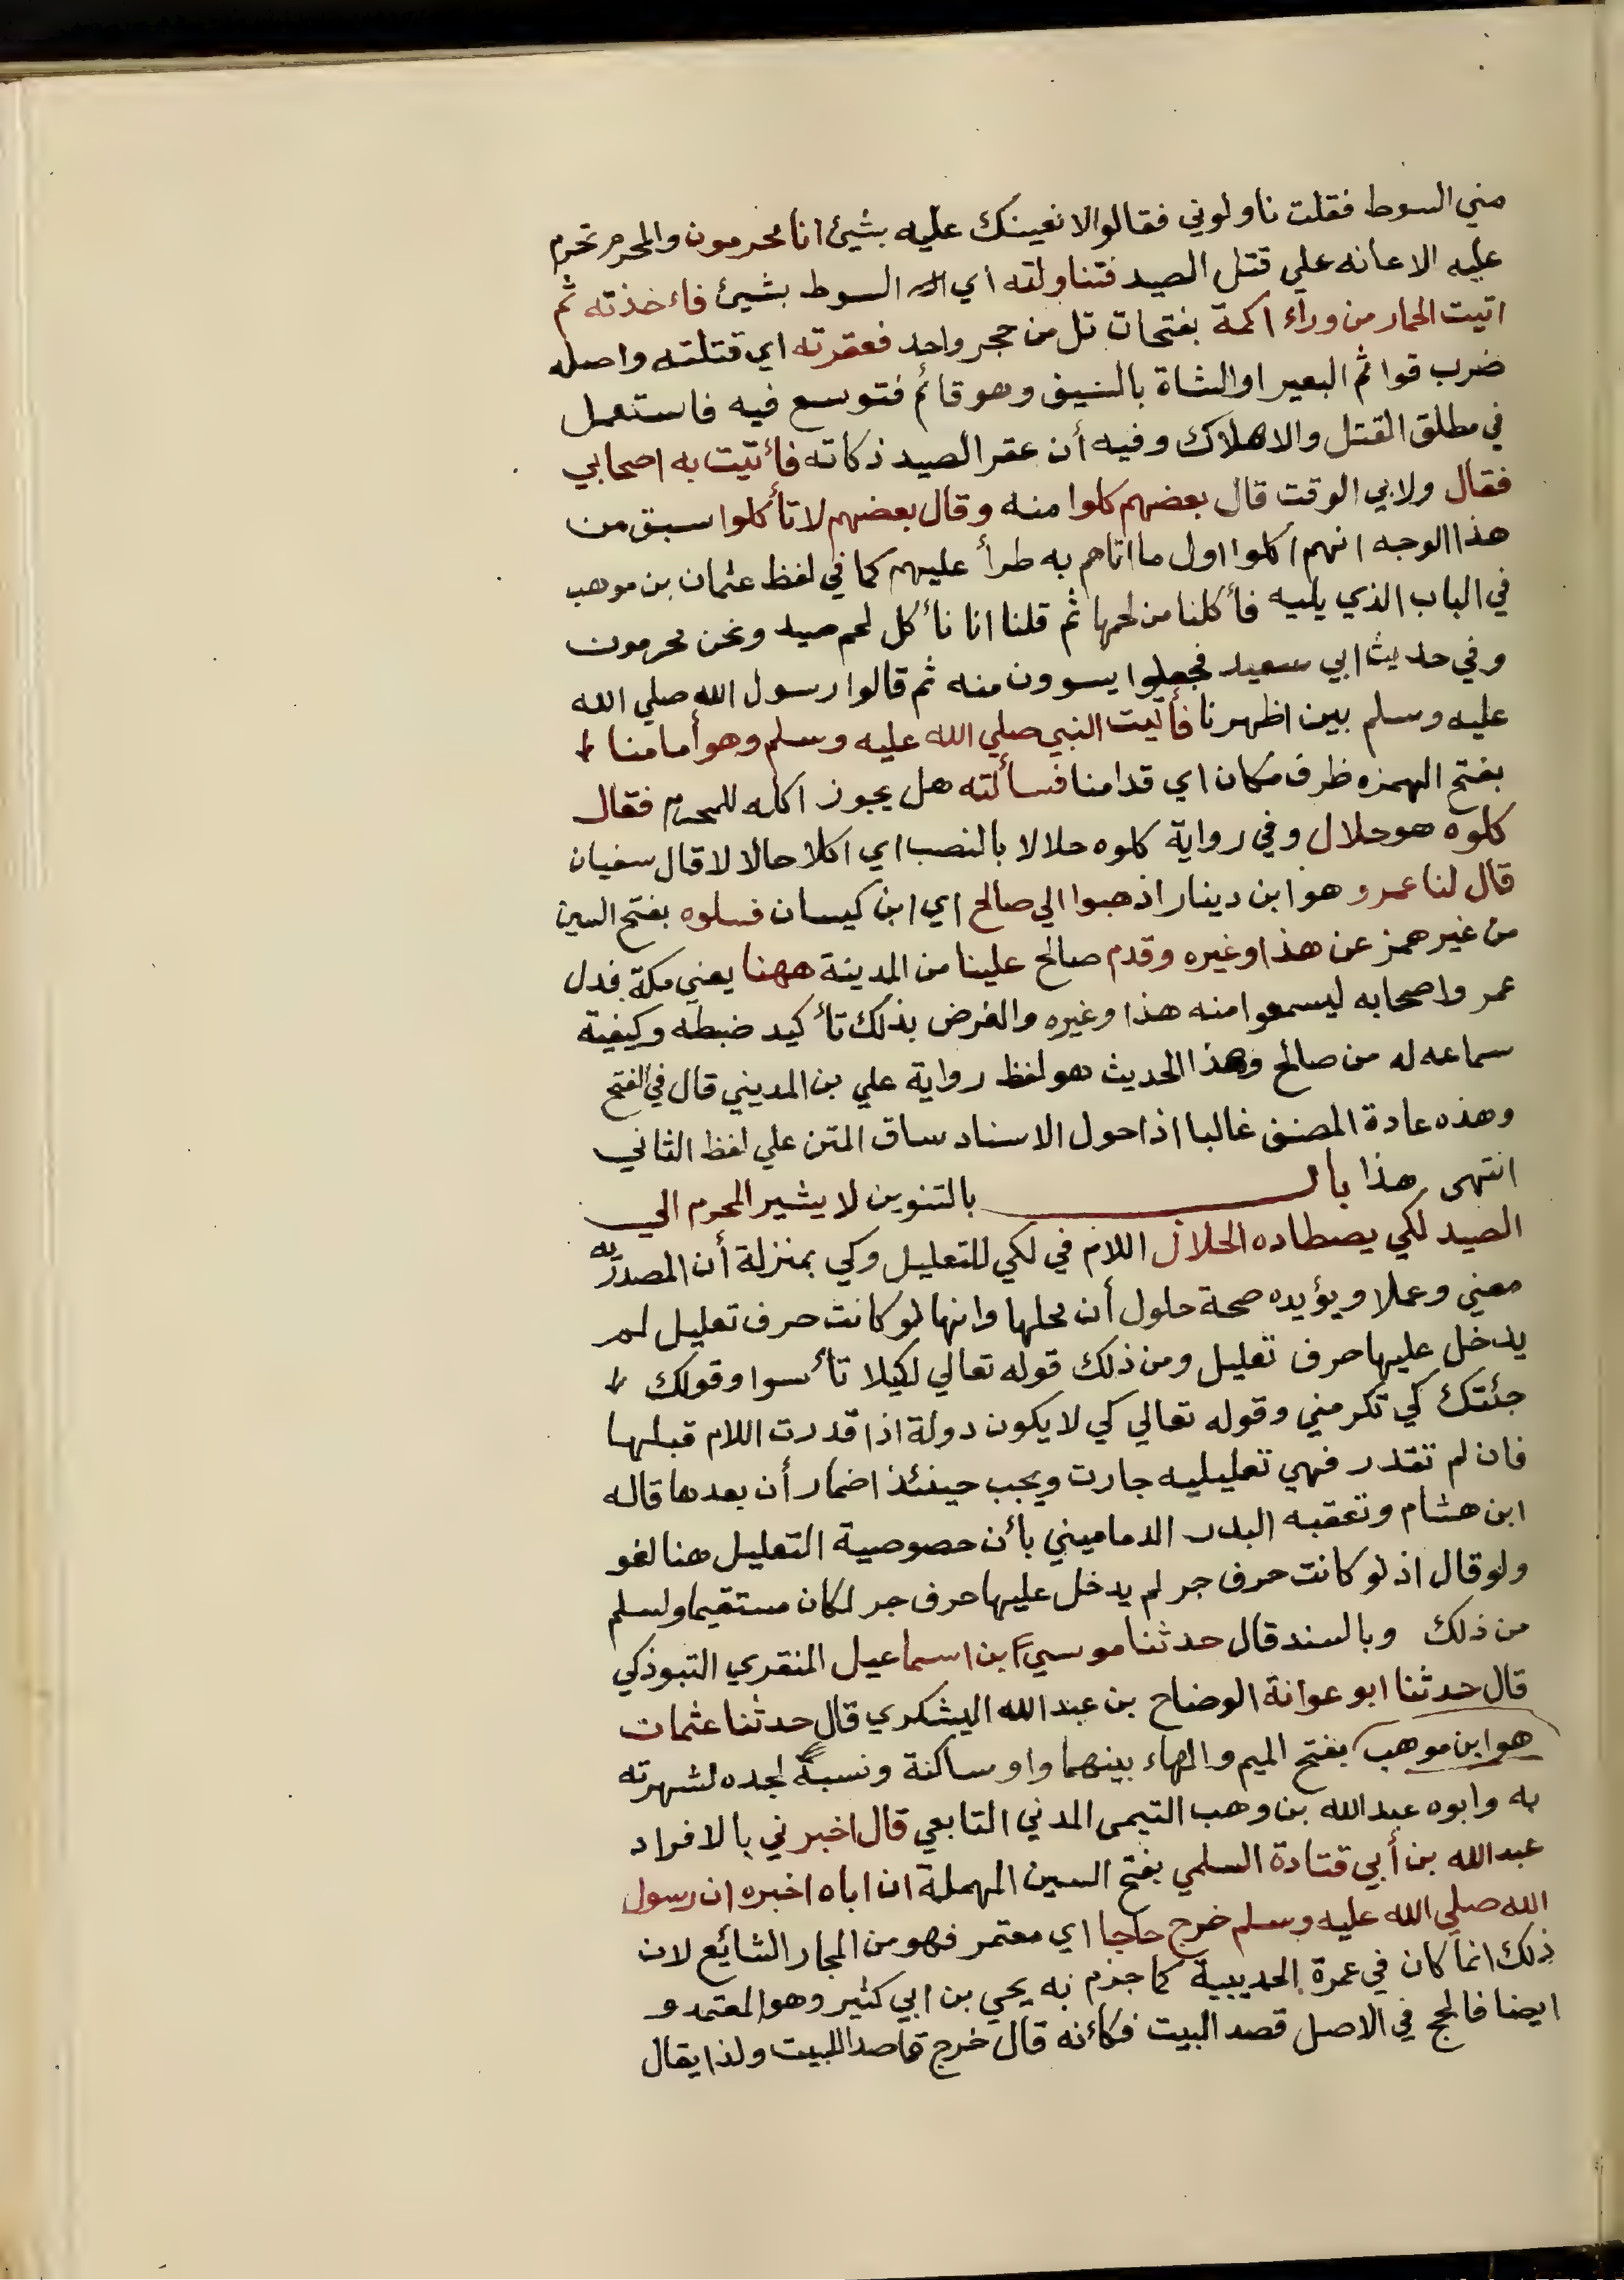 مني السوط فقلت ناولوني فقالوا لا نعينك عليه بشيئ انا محرمون والمحرم تحرم
عليه الاعانه علي قتل الصيد فتناولته اي السوط بشيئ فاءخذته ثم
اتيت الحمار من وراء اكمة بفتحات تل من حجر واحد فعقرته اي قتلته واصله
ضرب قوائم البعير او الشاة بالسيف وهو قائم فتوسع فيه فاستعمل
في مطلق القتل والاهلاك وفيه أن عقر الصيد ذكاته فأتيت به اصحابي
فقال ولابي الوقت قال بعضهم كلوا منه وقال بعضهم لا تأكلوا سبق من
هذا الوجه انهم اكلوا اول ما اتاهم به طرأ عليهم كما في لفظ عثمان بن موهب
في الباب الذي يليه فأكلنا من لحمها ثم قلنا انا نأكل لحم صيد ونحن محرمون
وفي حديث ابي سعيد فجعلوا يسوون منه ثم قالوا رسول الله صلي الله
عليه وسلم بين اظهرنا فأتيت النبي صلي الله عليه وسلم وهو أمامنا
بفتح الهمزه ظرف مكان اي قدامنا فسألته هل يجوز اكله للمحرم فقال
كلوه هو حلال وفي رواية كلوه حلالا بالنصب اي اكلا حالالا قال سفيان
قال لنا عمرو هو ابن دينار اذهبوا الي صالح اي ابن كيسان فسلوه بفتح السين
من غير همز عن هذا وغيره وقدم صالح علينا من المدينة ههنا يعني مكة فدل
عمر واصحابه ليسمعوا منه هذا وغيره والغرض بذلك تأكيد ضبطه وكيفية
سماعه له من صالح وهذا الحديث هو لفظ رواية علي بن المديني قال في الفتح
وهذه عادة المصنف غالبا اذا حول الاسناد ساق المتن علي لفظ الثاني
انتهى هذا باب بالتنوين لا يشير المحرم الي
الصيد لكي يصطاده الحلال اللام في لكي للتعليل وكي بمنزلة أن المصدريه
معني وعملا ويؤيده صحة حلول أن محلها وانها لو كانت حرف تعليل لم
يدخل عليها حرف تعليل ومن ذلك قوله تعالي لكيلا تأسوا وقولك
جئتك كي تكرمني وقوله تعالي كي لا يكون دولة اذا قدرت اللام قبلها
فان لم تقدر فهي تعليليه جارت ويجب حينئذ اضمار أن بعدها قاله
ابن هشام وتعقبه البدر الدماميني بأن حصوصية التعليل هنا لغو
ولو قال اذ لو كانت حرف جر لم يدخل عليها حرف جر لكان مستقيما ولسلم
من ذلك وبالسند قال حدثنا موسيٰ ابن اسماعيل المنقري التبوذكي
قال حدثنا ابو عوانة الوضاح بن عبد الله اليشكري قال حدثنا عثمان
هو ابن موهب بفتح الميم والهاء بينهما واو ساكنة ونسبةً لجده لشهرته
به وابوه عبد الله بن وهب التيمى المدني التابعي قال اخبرني بالافراد
عبد الله بن أبي قتادة السلمي بفتح السين المهملة ان اباه اخبره ان رسول
الله صلي الله عليه وسلم خرج حاجا اي معتمر فهو من المجار الشائع لان
ذلك انما كان في عمرة الحديبية كما جزم به يحي بن ابي كثير وهو المعتمد و
ايضا فالحج في الاصل قصد البيت فكأنه قال خرج قاصدا للبيت ولذا يقال